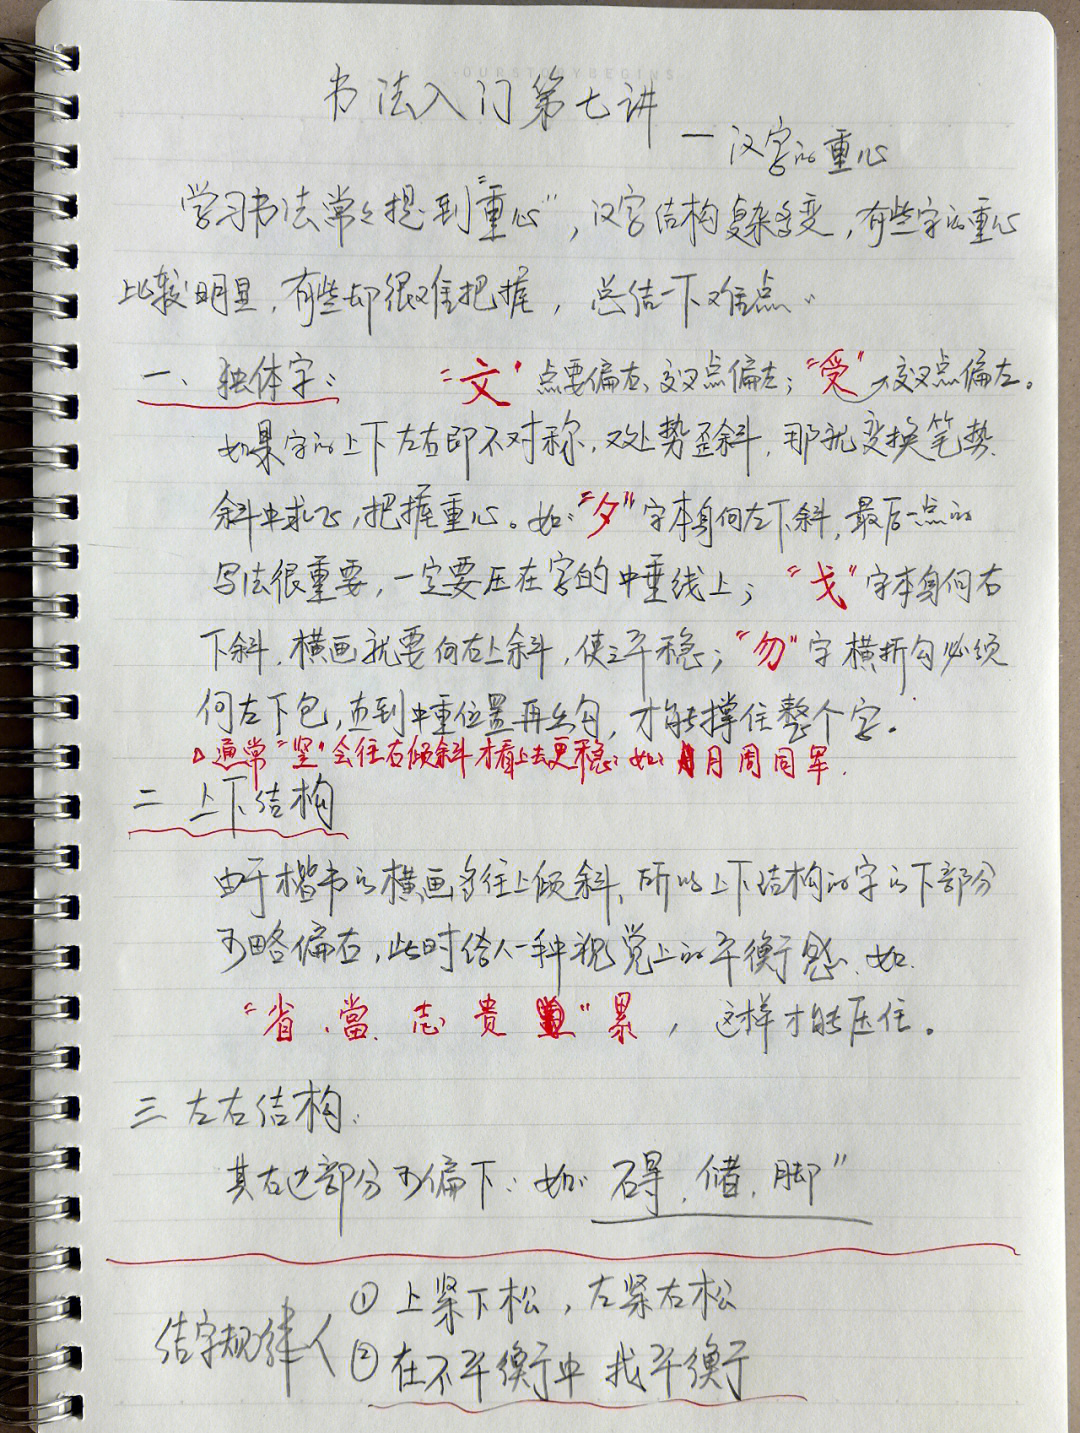 OURSTORYBEGINS
书法入门第七讲
一汉字的重心
学习书法常々提到"重心"，汉字结构复杂多变，有些字的重心
比较明显，有些却很难把握，总结一下难点：
一、独体字： "文"点要偏右、交叉点偏左；"受"→交叉点偏左。
如果字的上下左右即不对称，又处势歪斜，那就变换笔势
斜中求正，把握重心。如："夕"字本身向左下斜，最后一点的
写法很重要，一定要压在字的中垂线上；"戈"字本身向右
下斜，横画就要向右上斜，使之平稳；"勿"字横折勾必须
向左下包，直到中重位置再出勾，才能撑住整个字。
通常"竖"会往右倾斜才看上去更稳：如：月周同军.
二 上下结构
由于楷书的横画多往上倾斜，所以上下结构的字的下部分
可略偏右，此时给人一种视觉上的平衡感、如.
"省、當、志 贵"暴，这样才能压住。
三 左右结构：
其右边部分可偏下：如：碍、储、脚"
结字规律
①上紧下松，左紧右松
②在不平衡中找平衡